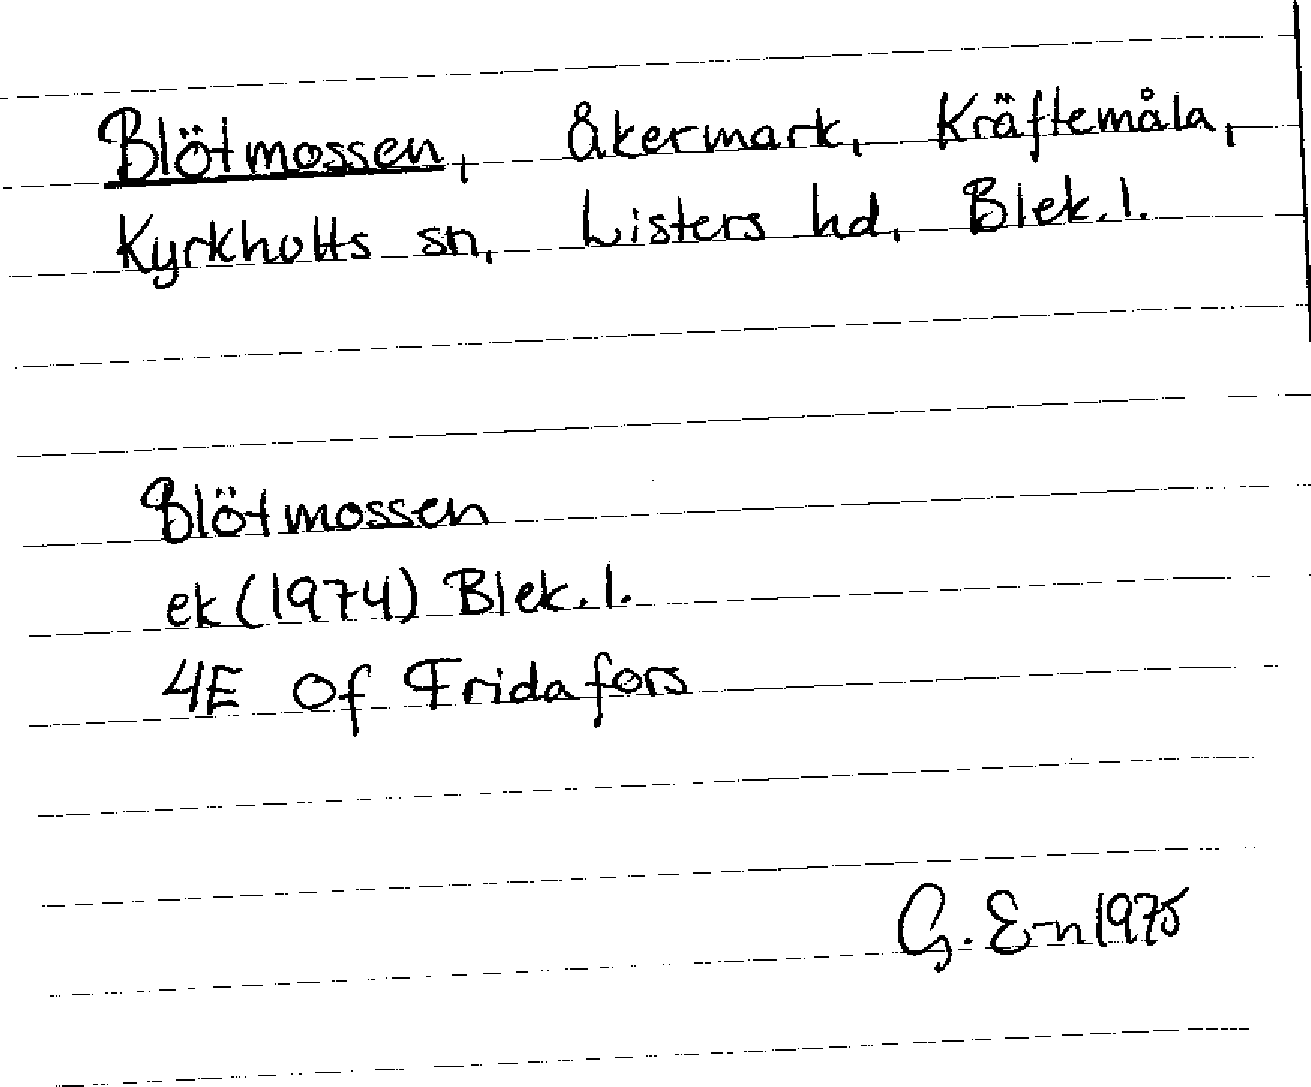 Blötmossen, åkermark, Kräftemåla,
Kyrkhults sn, Listers hd, Blek. l.
Blötmossen
ek (1974) Blek. l.
4E 0f Fridafors
G. E-n 1975